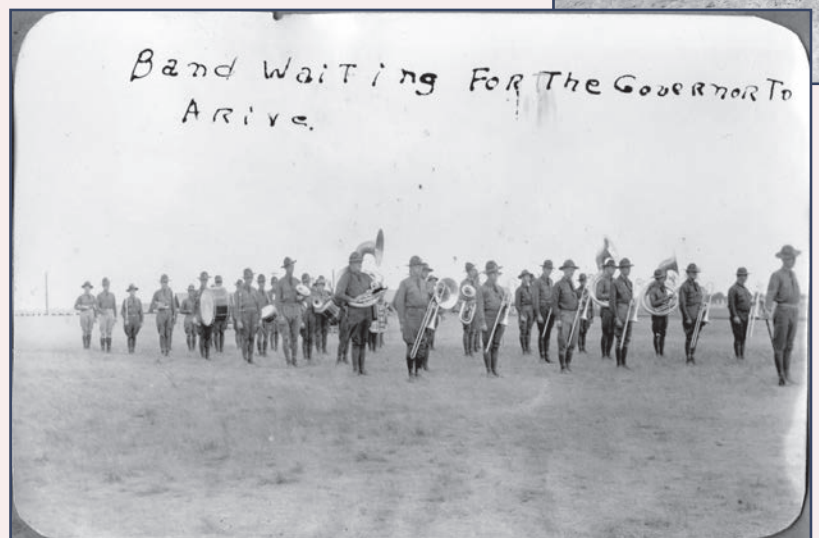 Band WaiTing FoR The GoveRnoR To
ARive.